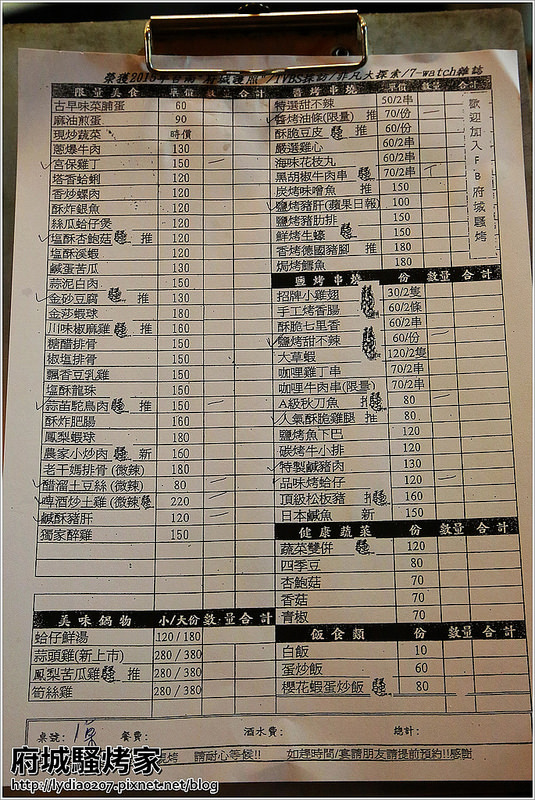 榮獲2015年台南"府城護照"/TVBS採訪/非凡大探索/7-watch雜誌
限量美食 單價 數量 合計
古早味菜脯蛋 60
麻油煎蛋 90
現炒蔬菜 時價
蔥爆牛肉 130
宮保雞丁 150
塔香蛤蜊 120
香炒螺肉 120
酥炸銀魚 120
絲瓜蛤仔煲 120
塩酥杏鮑菇 騷 推 120
塩酥溪蝦 120
鹹蛋苦瓜 130
蒜泥白肉 150
金砂豆腐 騷 推 130
金莎蝦球 180
川味椒麻雞 騷 推 160
糖醋排骨 150
椒塩排骨 150
飄香豆乳雞 150
塩酥龍珠 150
蒜苗鴕鳥肉 騷 推 150
酥炸肥腸 160
鳳梨蝦球 180
農家小炒肉 騷 新 160
老干媽排骨(微辣) 180
醋溜土豆絲(微辣) 80
啤酒炒土雞(微辣 騷 220
鹹酥豬肝 120
獨家醉雞 150
美味鍋物 小/大份 數量 合計
蛤仔鮮湯 120/180
蒜頭雞(新上市) 280/380
鳳梨苦瓜雞 騷 推 280/380
筍絲雞 280/380
醬烤串燒 單價 數量 合計
特選甜不辣 50/2串
醬烤油條(限量) 推 70/份
酥脆豆皮 騷 推 60/2串
嚴選雞心 60/2串
海味花枝丸 70/2串
黑胡椒牛肉串 騷 70/2串
炭烤味噌魚 推 150
鹽烤豬肝(蘋果日報) 100
鹽烤豬肋排 150
鮮烤生蠔 騷 150
香烤德國豬腳 推 180
焗烤鱈魚 180
鹽烤串燒 份 數量 合計
招牌小雞翅 騷 30/2隻
手工烤香腸 60/2條
酥脆七里香 60/2串
鹽烤甜不辣 騷 60/份
大草蝦 120/2隻
咖哩雞丁串 70/2串
咖哩牛肉串(限量) 70/2串
A級秋刀魚 騷 80
人氣酥脆雞腿 推 80
鹽烤魚下巴 120
碳烤牛小排 120
特製鹹豬肉 130
品味烤蛤仔 120
頂級松板豬 騷 160
日本鹹魚 新 150
健康蔬菜 份 數量 合計
蔬菜雙併 騷 120
四季豆 80
杏鮑菇 70
香菇 70
青椒 70
飯食類 份 數量 合計
白飯 10
蛋炒飯 60
櫻花蝦蛋炒飯 騷 80
歡迎加入FB府城騷烤
桌號: 餐費: 酒水費: 總計:
現烤 請耐心等候!! 如趕時間/宴請朋友請提前預約!!感謝
府城騷烤家
http://lydia0207.pixnet.net/blog